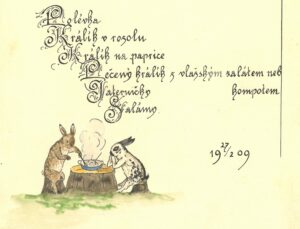 Polévka
Králík v rosolu
Králík na paprice
Pečený králík s vlašským salátem neb
Paterničky kompotem.
Salámy.
19 27/2 09